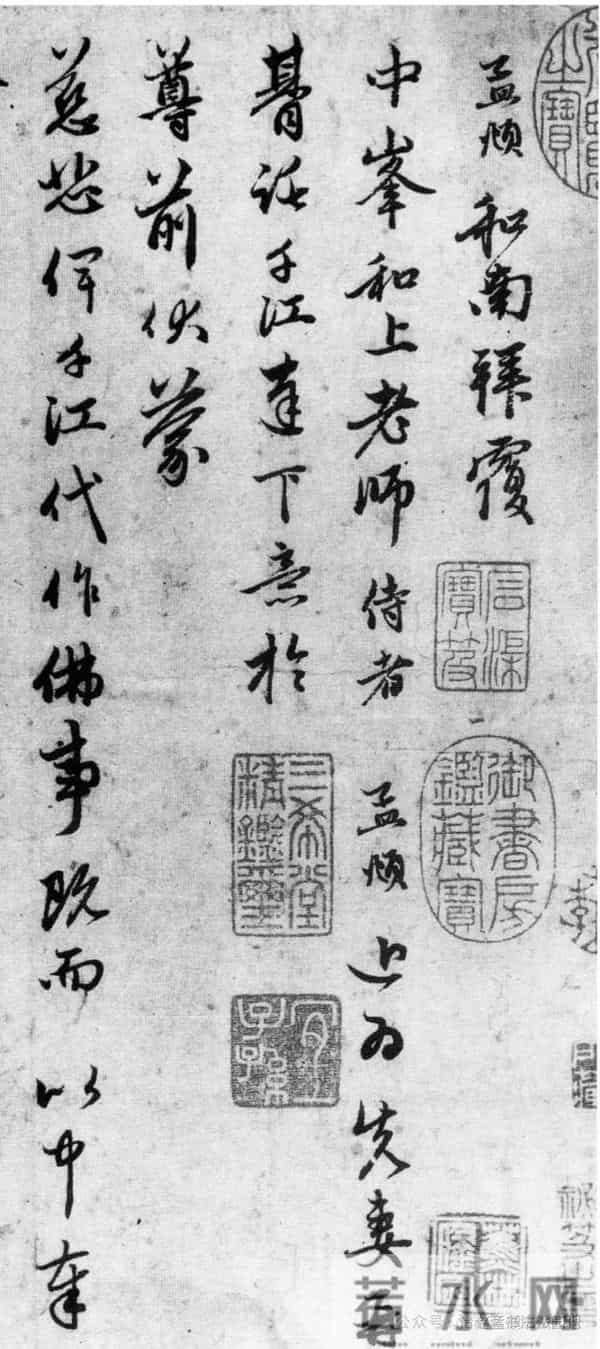 孟頫和南拜覆
中峯和上老師侍者 孟頫近为先妻
朞託千江達下意於
尊前伏蒙
慈悲俾千江代作佛事既而以中奉
之寶
石渠寶笈
御書房鑑藏寶
三希堂精鑑璽
宜子孫
水网
公众号